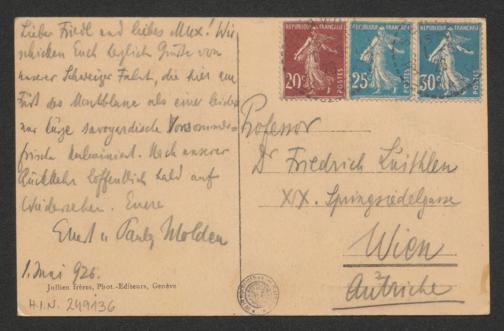 Lieber Friedl und liebes Mux! Wir
schicken Euch herzlich Grüße von
unserer Schweizer Fahrt, die hier am
Fuß des Montblanc als einer leider
nur kurze savoyardische Vorsommer-
frische kulminiert. Nach unserer
Rückkehr hoffentlich bald auf
Wiedersehen. Euere
Ernst u Paula Molden
1. Mai 926.
Jullien frères, Phot.-Editeurs, Genève
H.I.N. 249136
REPUBLIQUE FRANÇAISE
20c
POSTES
REPUBLIQUE FRANÇAISE
25c
POSTES
REPUBLIQUE FRANÇAISE
30c
POSTES
Professor
Dr Friedrich Luithlen
XIX. Springsiedelgasse
Wien
Autriche